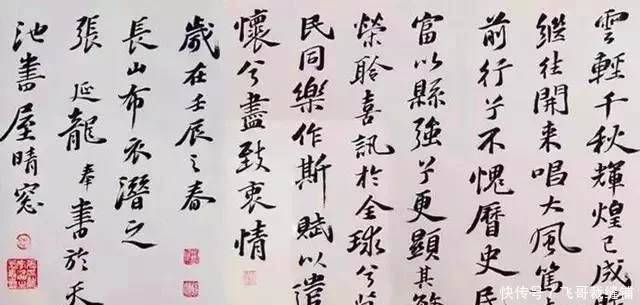 雲輕千秋輝煌已成
繼往開來唱大風篤
前行兮不愧曆史
富以縣強兮更顯其
榮聆喜訊於全球兮
民同樂作斯賦以遣
懷兮盡致衷情
歲在壬辰之春
長山布衣潛之
張延龍奉書於天
池書屋晴窓
快传号/飞哥我